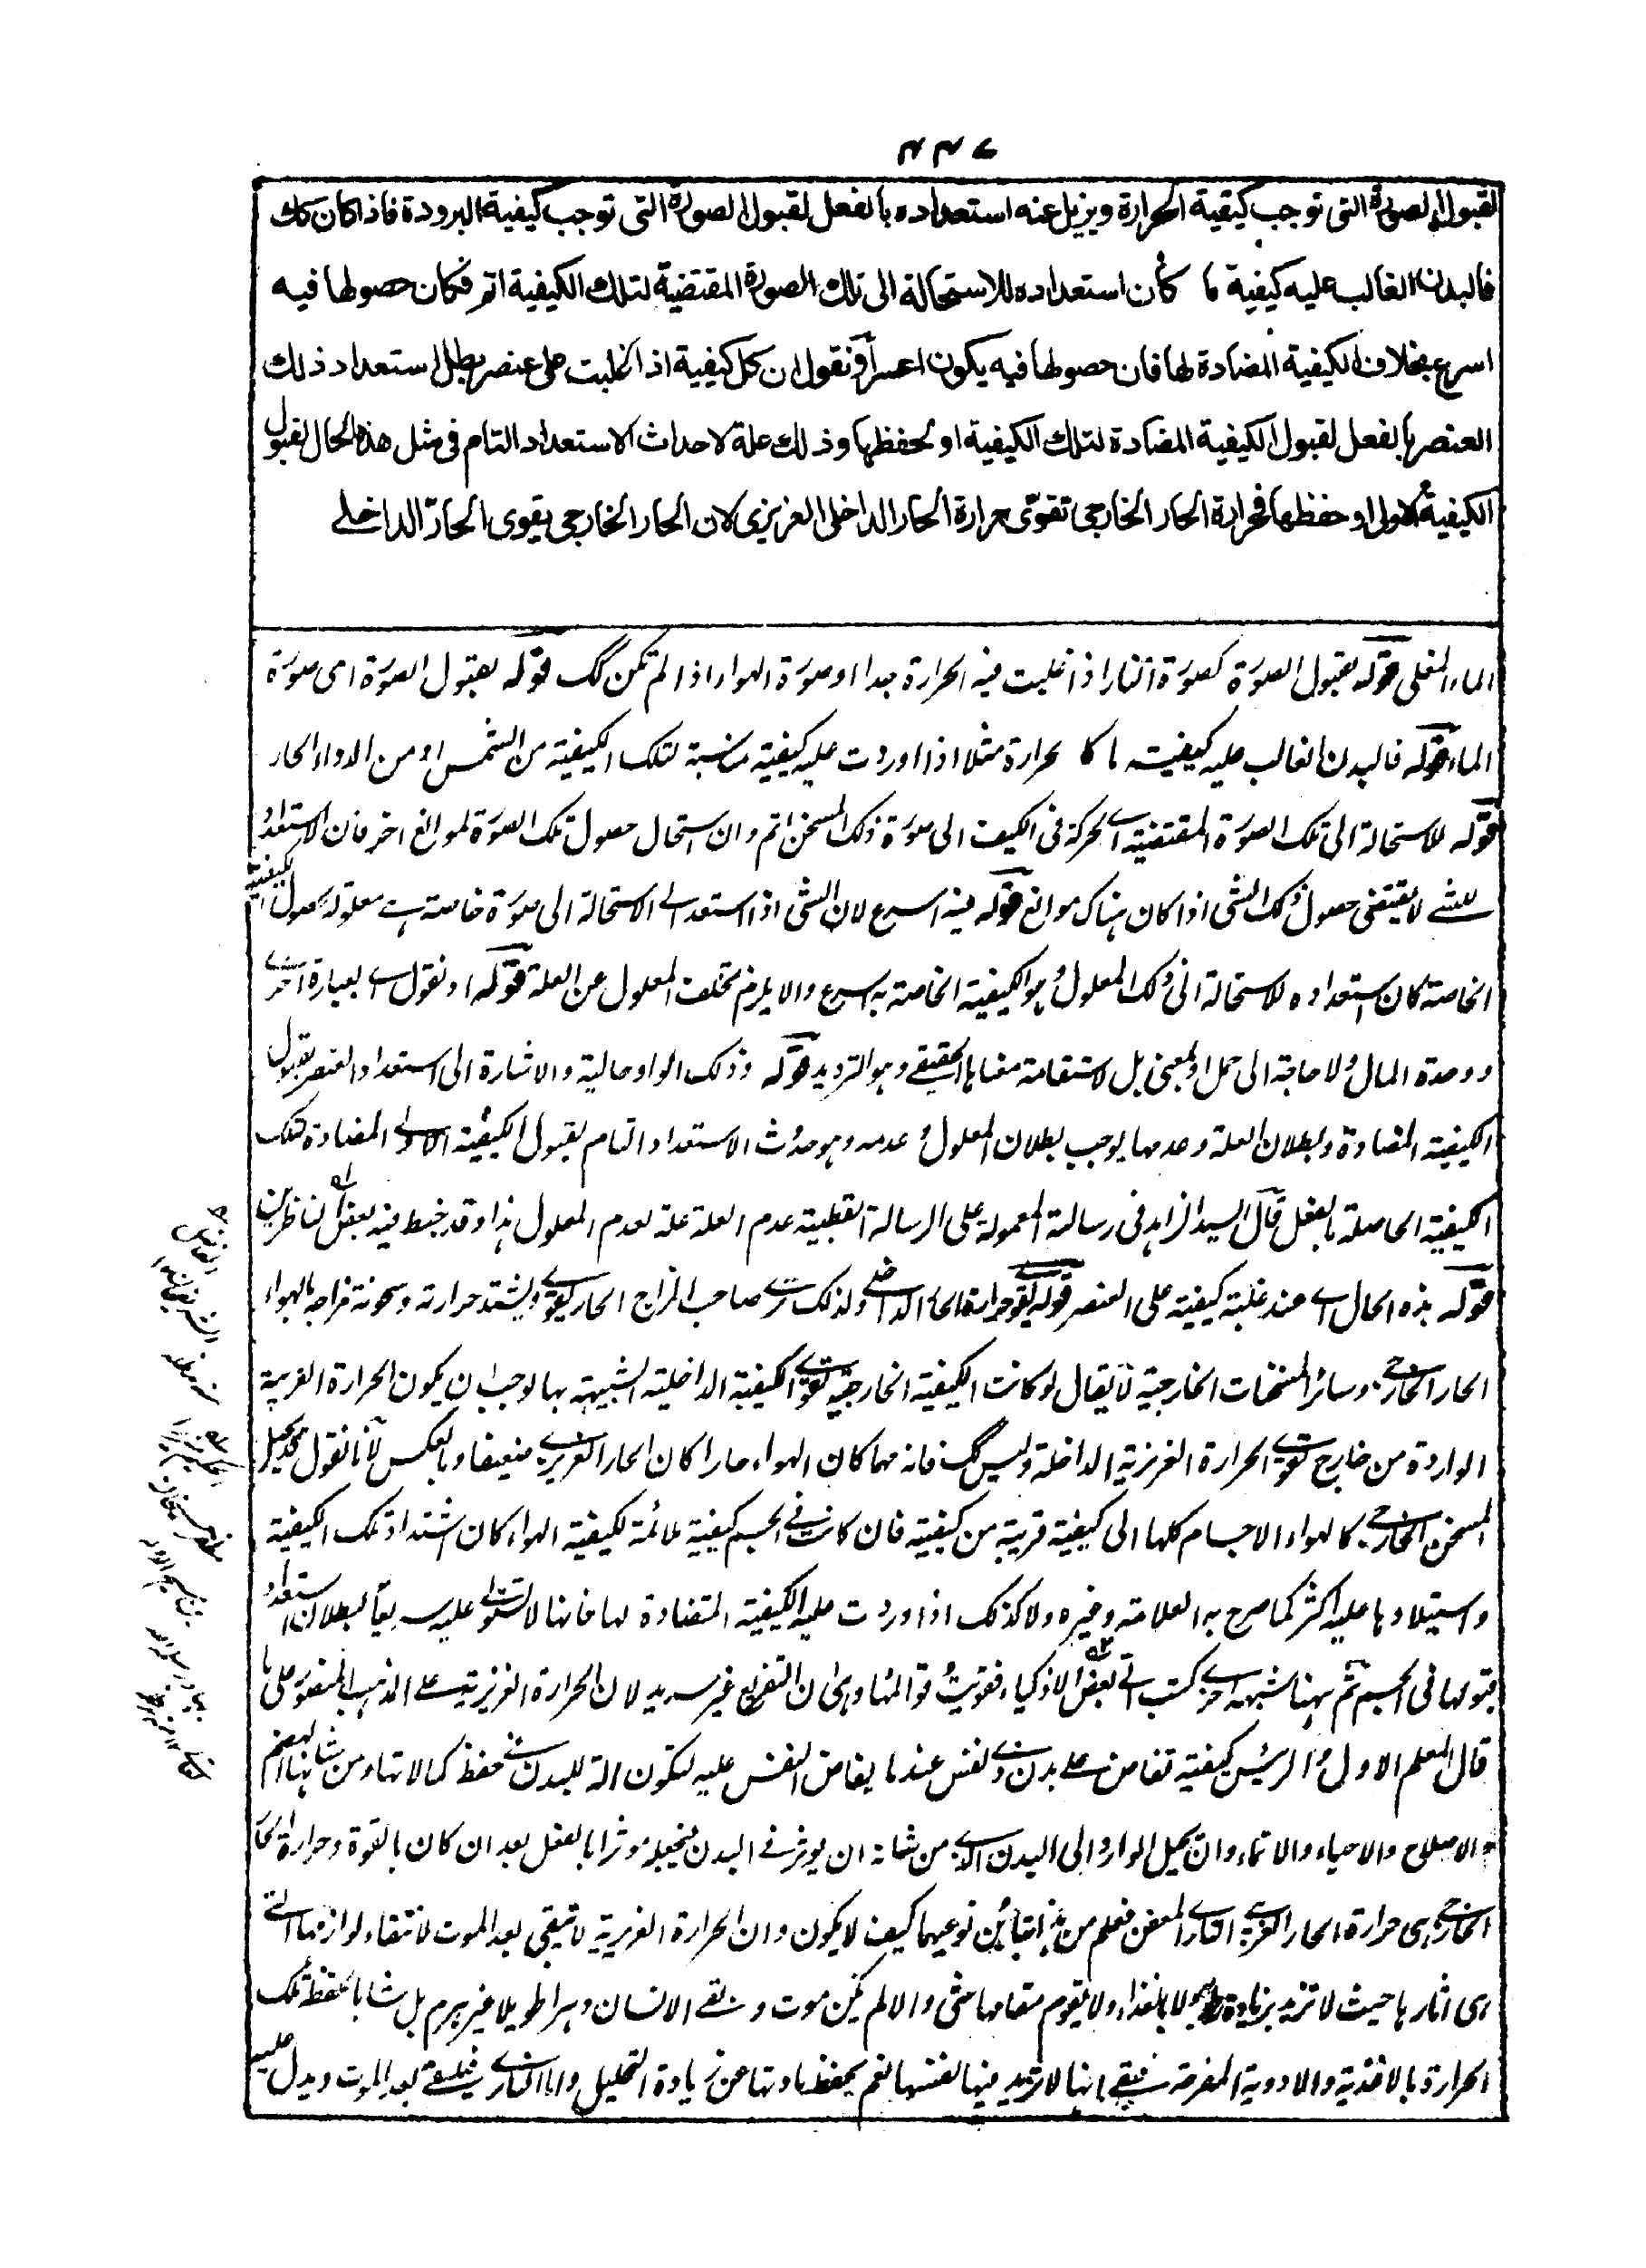 لقبول الصورة التى توجب كيفية الحرارة ويزيل عنه استعداده بالفعل لقبول الصورة التى توجب كيفية البرودة فاذا كان كك
فالبدن الغالب عليه كيفية ما كأن استعداده للاستحالة الى تلك الصورة المقتضية لتلك الكيفية اتم فكان حصولها فيه
اسرع بخلاف الكيفية المضادة لها فان حصولها فيه يكون اعسر او نقول ان كل كيفية اذا غلبت على عنصر بطل استعداد ذلك
العنصر بالفعل لقبول الكيفية المضادة لتلك الكيفية او لحفظها وذلك علة لاحداث الاستعداد التام فى مثل هذه الحال لقبول
الكيفية الاولى او حفظها فحرارة الحار الخارجى تقوّى حرارة الحار الداخلى الغريزى لان الحار الخارجى يقوى الحارّ الداخلے
الماء المغلى قوله بقبول الصورة كصورة النار اذا غلبت فيه الحرارة جدا او صورة الهواء اذا لم تكن كك قوله بقبول الصورة اى صورة
الماء قوله فالبدن الغالب عليه كيفيته ما كا لحرارة مثلا اذا اوردت عليه كيفية مناسبة لتلك الكيفية من الشمس او من الدواء الحار
قوله للاستحالة الى تلك الصورة المقتضية اے الحركة فى الكيف الى صورة ذلك المسخن اتم وان استحال حصول تلك الصورة لموانع اخر فان الاستعداد
للشے لا يقتضى حصول ذلك الشى اذا كان هناك موانع قوله فيه اسرع لان الشى اذا استعد اے الاستحالة الى صورة خاصة هے معلولة لحصول الكيفية
الخاصة كان استعداده للاستحالة الى ذلك المعلول وهو الكيفية الخاصة به اسرع والا يلزم تخلف المعلول عن العلة قوله او نقول اے بعبارة اخرے
ووحدة المال ولا حاجة الى حمل او بمعنى بل لاستقامة معناها الحقيقے وهو الترديد قوله وذلك الواو حالية والاشارة الى استعداد العنصر بقبول
الكيفية المضادة وبطلان العلة وعدمها يوجب بطلان المعلول وعدمه وهو حدوث الاستعداد التام بقبول الكيفية الاولے المضادة لتلك
الكيفية الحاصلة بالفعل قال السيد الزاهد فى رسالته المعمولة على الرسالة القطبية عدم العلة علة لعدم المعلول هذا وقد خبط فيه بعض الناظرين
قوله هذه الحال اے عند غلبة كيفية على العنصر قوله يقوے حرارة الحار الداخلے ولذلك ترے صاحب المزاج الحار يقوے ويشتد حرارته وسخونة مزاجه بالهواء
الحار الخارجے وسائر المسخنات الخارجية لا يقال لو كانت الكيفية الخارجية تقوے الكيفية الداخلية الشبيهة بها لوجب ان يكون الحرارة الغريبة
الواردة من خارج تقوے الحرارة الغريزية الداخلة وليس كك فانه مهما كان الهواء حارا كان الحار الغريزے ضعيفا وبالعكس لانا نقول يحيل
المسخن الخارجے كالهواء الاجسام كلها الى كيفية قريبة من كيفية فان كانت فے الجسم كيفية ملائمة لكيفية الهواء كان اشتداد تلك الكيفية
واستيلاؤها عليه اكثر كما صرح به العلامة وغيره ولا كذلك اذا وردت عليه الكيفية المتضادة لها فانها لا تستولے عليه سريعا لبطلان استعداد
قبولها فى الجسم ثم ههنا شبهة اخرے كتب الى بعض الاذكياء فقويت قوائمها وهى ان التفريع غير سديد لان الحرارة الغريزية على المذهب المنصور على ما
قال المعلم الاول والرئيس كيفية تفاض على بدن ذى نفس عندما يفاض النفس عليه لتكون الة للبدن فے حفظ كمالاتها ومن شانها الهضم
والاصلاح والاحياء والانماء وان يحيل الوارد الى البدن الذے من شانه ان يوثر فے البدن فيجعله موثرا بالفعل بعد ان كان بالقوة وحرارة الحار
الخارجے هى حرارة الحار الغريب النارے المعفن فعلم من هذا تباين نوعيهما كيف لا يكون وان الحرارة الغريزية لا تبقى بعد الموت لانتفاء لوازمها التے
هى اثارها حيث لا تزيد بزيادة ولا بالغذاء ولا يقوم مقامها شئ والا لم يكن موت وبقے الانسان دهرا طويلا غير هرم بل شابا لحفظ تلك
الحرارة بالاغذية والادوية المفرحة فبقے انها لا تزيد فيها لنفسها نعم يحفظ مادتها عن زيادة التحليل واما النارے فيبقے بعد الموت ويدل عليه